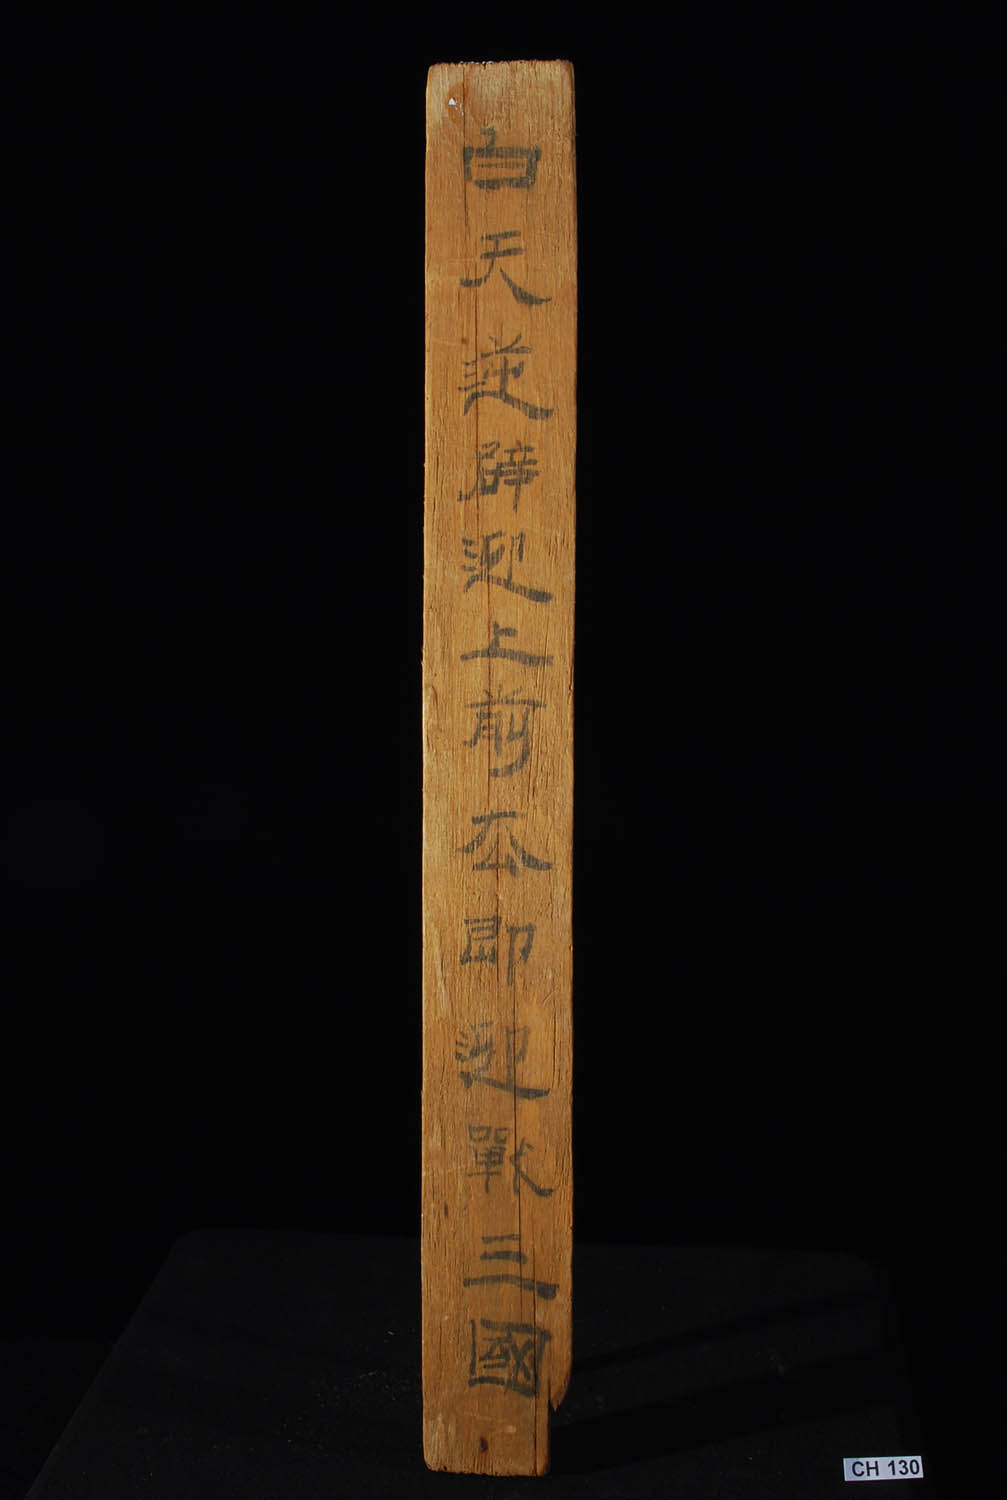 白天逆辟迎上前本即迎戰三國
CH 130